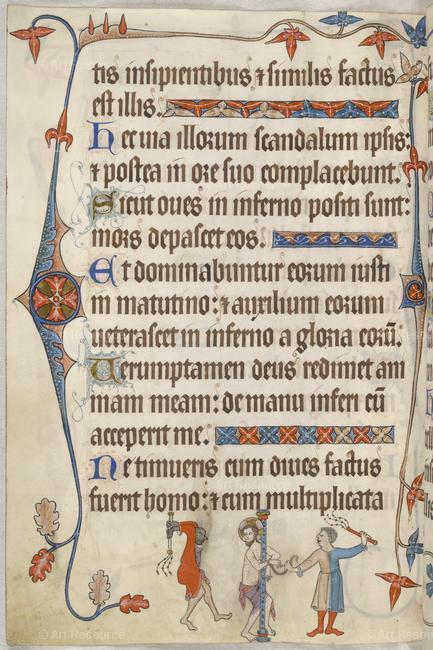 tis insipientibus ⁊ similis factus
est illis.
Hec uia illorum scandalum ipsis:
⁊ postea in ore suo complacebunt.
Sicut oues in inferno positi sunt:
mors depascet eos.
Et dominabuntur eorum iusti
in matutino: ⁊ auxilium eorum
ueterascet in inferno a gloria eorū.
Uerumptamen deus redimet ani
mam meam: de manu inferi cū
acceperit me.
Ne timueris cum diues factus
fuerit homo: ⁊ cum multiplicata
© Art Resource
© Art Resource